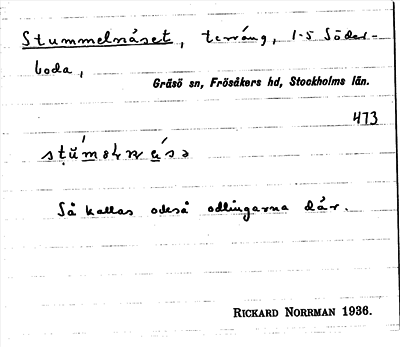 Stummelnäset, terräng, 1-5 Söder-
boda,
Gräsö sn, Frösåkers hd, Stockholms län.
473
Så kallas också odlingarna där.
RICKARD NORRMAN 1936.